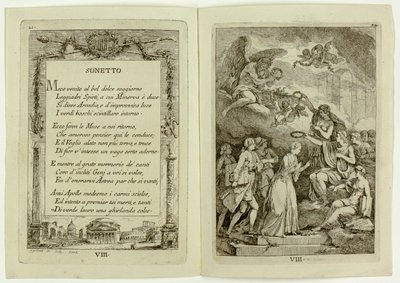 SONETTO
Meco venite al bel dolce soggiorno
Leggiadri Spirti, a cui Minerva è duce
Si dirvi Arcadia, e d'improvvisa luce
I verdi boschi scintillare intorno.
Ecco feron le Muse a noi ritorno,
Che amoroso pensier qui le conduce;
E il Veglio alato non più torvo, e truce
Di fior v'intesse un vago serto adorno.
E mentre al grato mormorio de' canti
Coro d'incliti Genj a voi si volve,
Fia d'onorarvi Astrea par che si vanti;
Anzi Apollo medesmo i carmi scioglie,
Ed intento a premiar tai merti, e tanti
Di verde lauro una ghirlanda coglie.
VIII.
VIII.